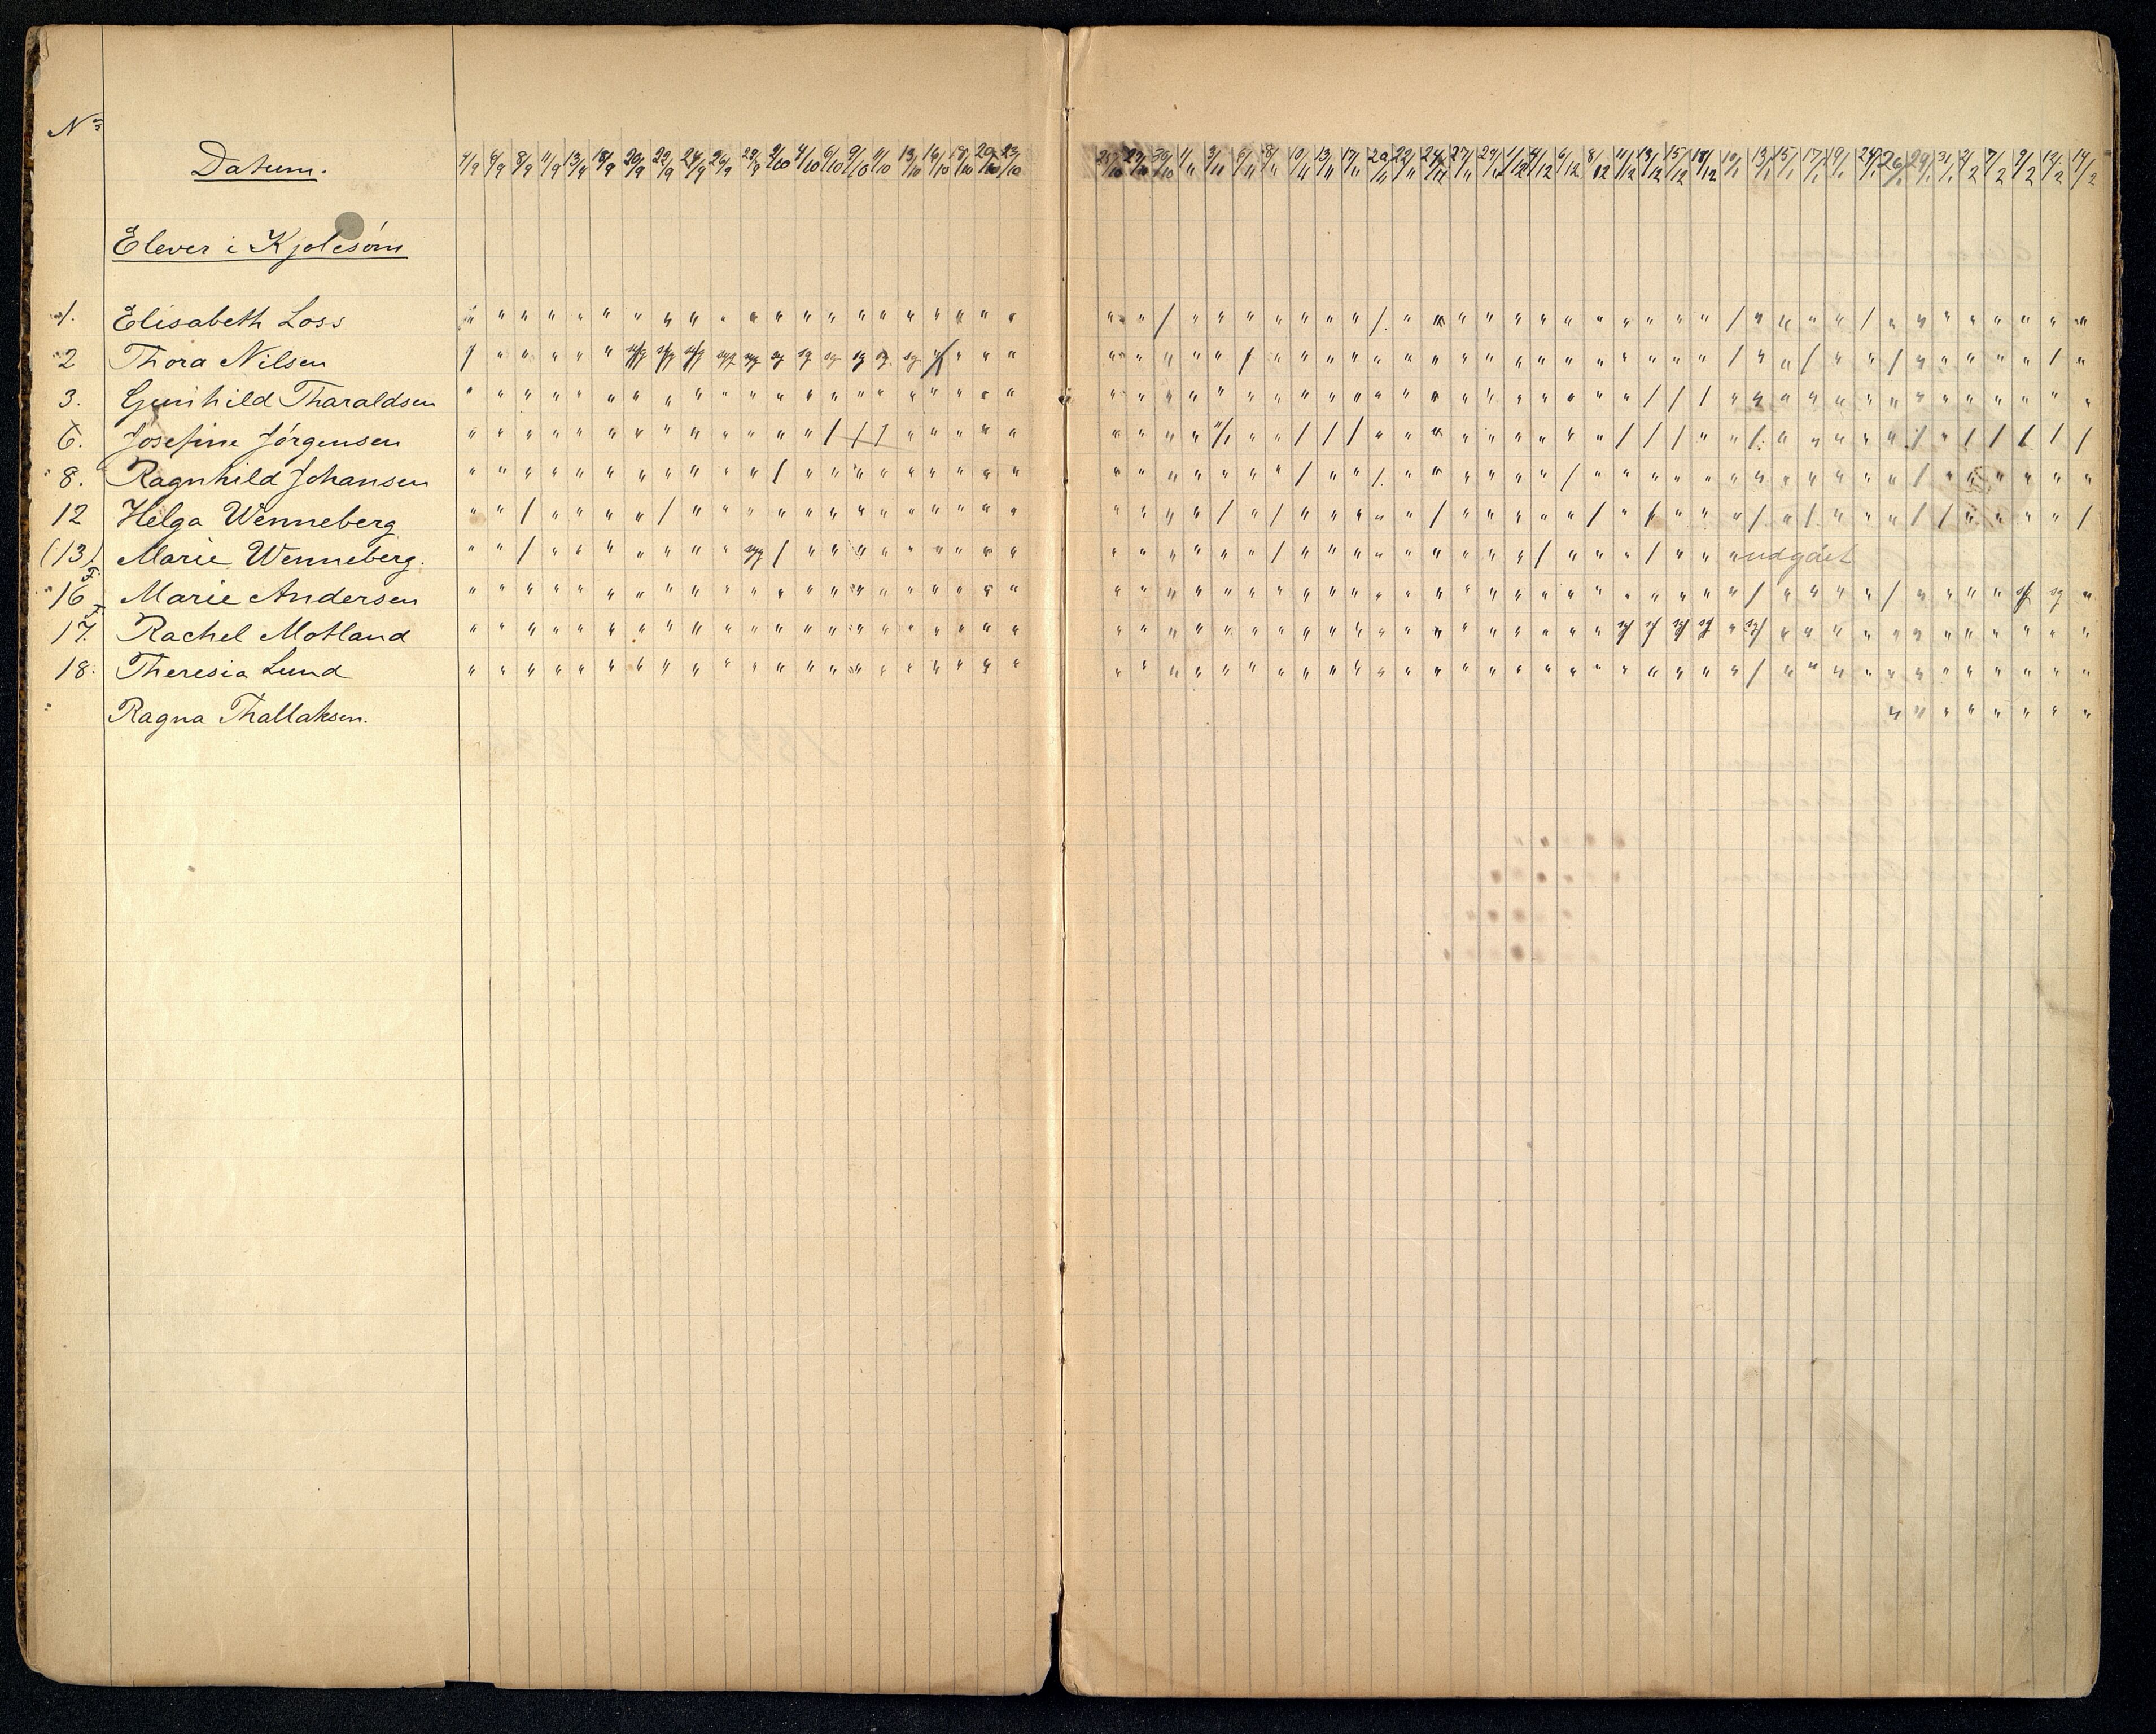 No
Datum. 4/9 6/9 8/9 11/9 13/9 18/9 20/9 22/9 24/9 26/9 29/9 2/10 4/10 6/10 9/10 11/10 13/10 16/10 18/10 20/10 23/10 25/10 27/10 30/10 1/11 3/11 6/11 8/11 10/11 13/11 17/11 20/11 22/11 24/11 27/11 29/11 1/12 4/12 6/12 8/12 11/12 13/12 15/12 18/12 10/1 13/1 15/1 17/1 19/1 24/1 26/1 29/1 31/1 2/2 7/2 9/2 12/2 14/2
Elever i Kjolesöm
1. Elisabeth Loss
2 Thora Nilsen syg syg syg syg syg sg sg sg sg sg sg
3. Gunhild Tharaldsen
6. Josefine Jörgensen
8. Ragnhild Johansen
12 Helga Wenneberg
(13) Marie Wenneberg. syg udgået
16 F Marie Andersen sg sg
17. F Rachel Motland
18. Theresia Lund
Ragna Thallaksen.